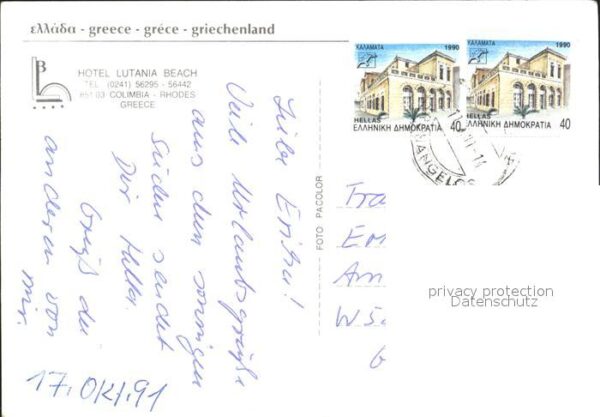 ελλάδα - greece - gréce - griechenland
B
HOTEL LUTANIA BEACH
TEL (0241) 56295 - 56442
851 03 COLIMBIA - RHODES
GREECE
ΚΑΛΑΜΑΤΑ 1990
HELLAS 40
ΕΛΛΗΝΙΚΗ ΔΗΜΟΚΡΑΤΙΑ
ΚΑΛΑΜΑΤΑ 1990
ΕΛΛΗΝΙΚΗ ΔΗΜΟΚΡΑΤΙΑ 40
Liebe Erika!
Viele Urlaubsgrüße
aus dem sonnigen
Süden sendet
Dir Heller.
Grüß die
anderen von
mir.
17. Okt. 91
FOTO PACOLOR
Fra
Er
Am
W
privacy protection
Datenschutz